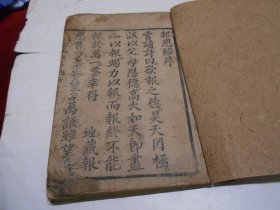 報恩經序
嘗讀詩曰欲報之德昊天罔極
誠以父母恩德高大如天即盡
心以報竭力以報而報終不能
報於萬一某幸得 地藏報